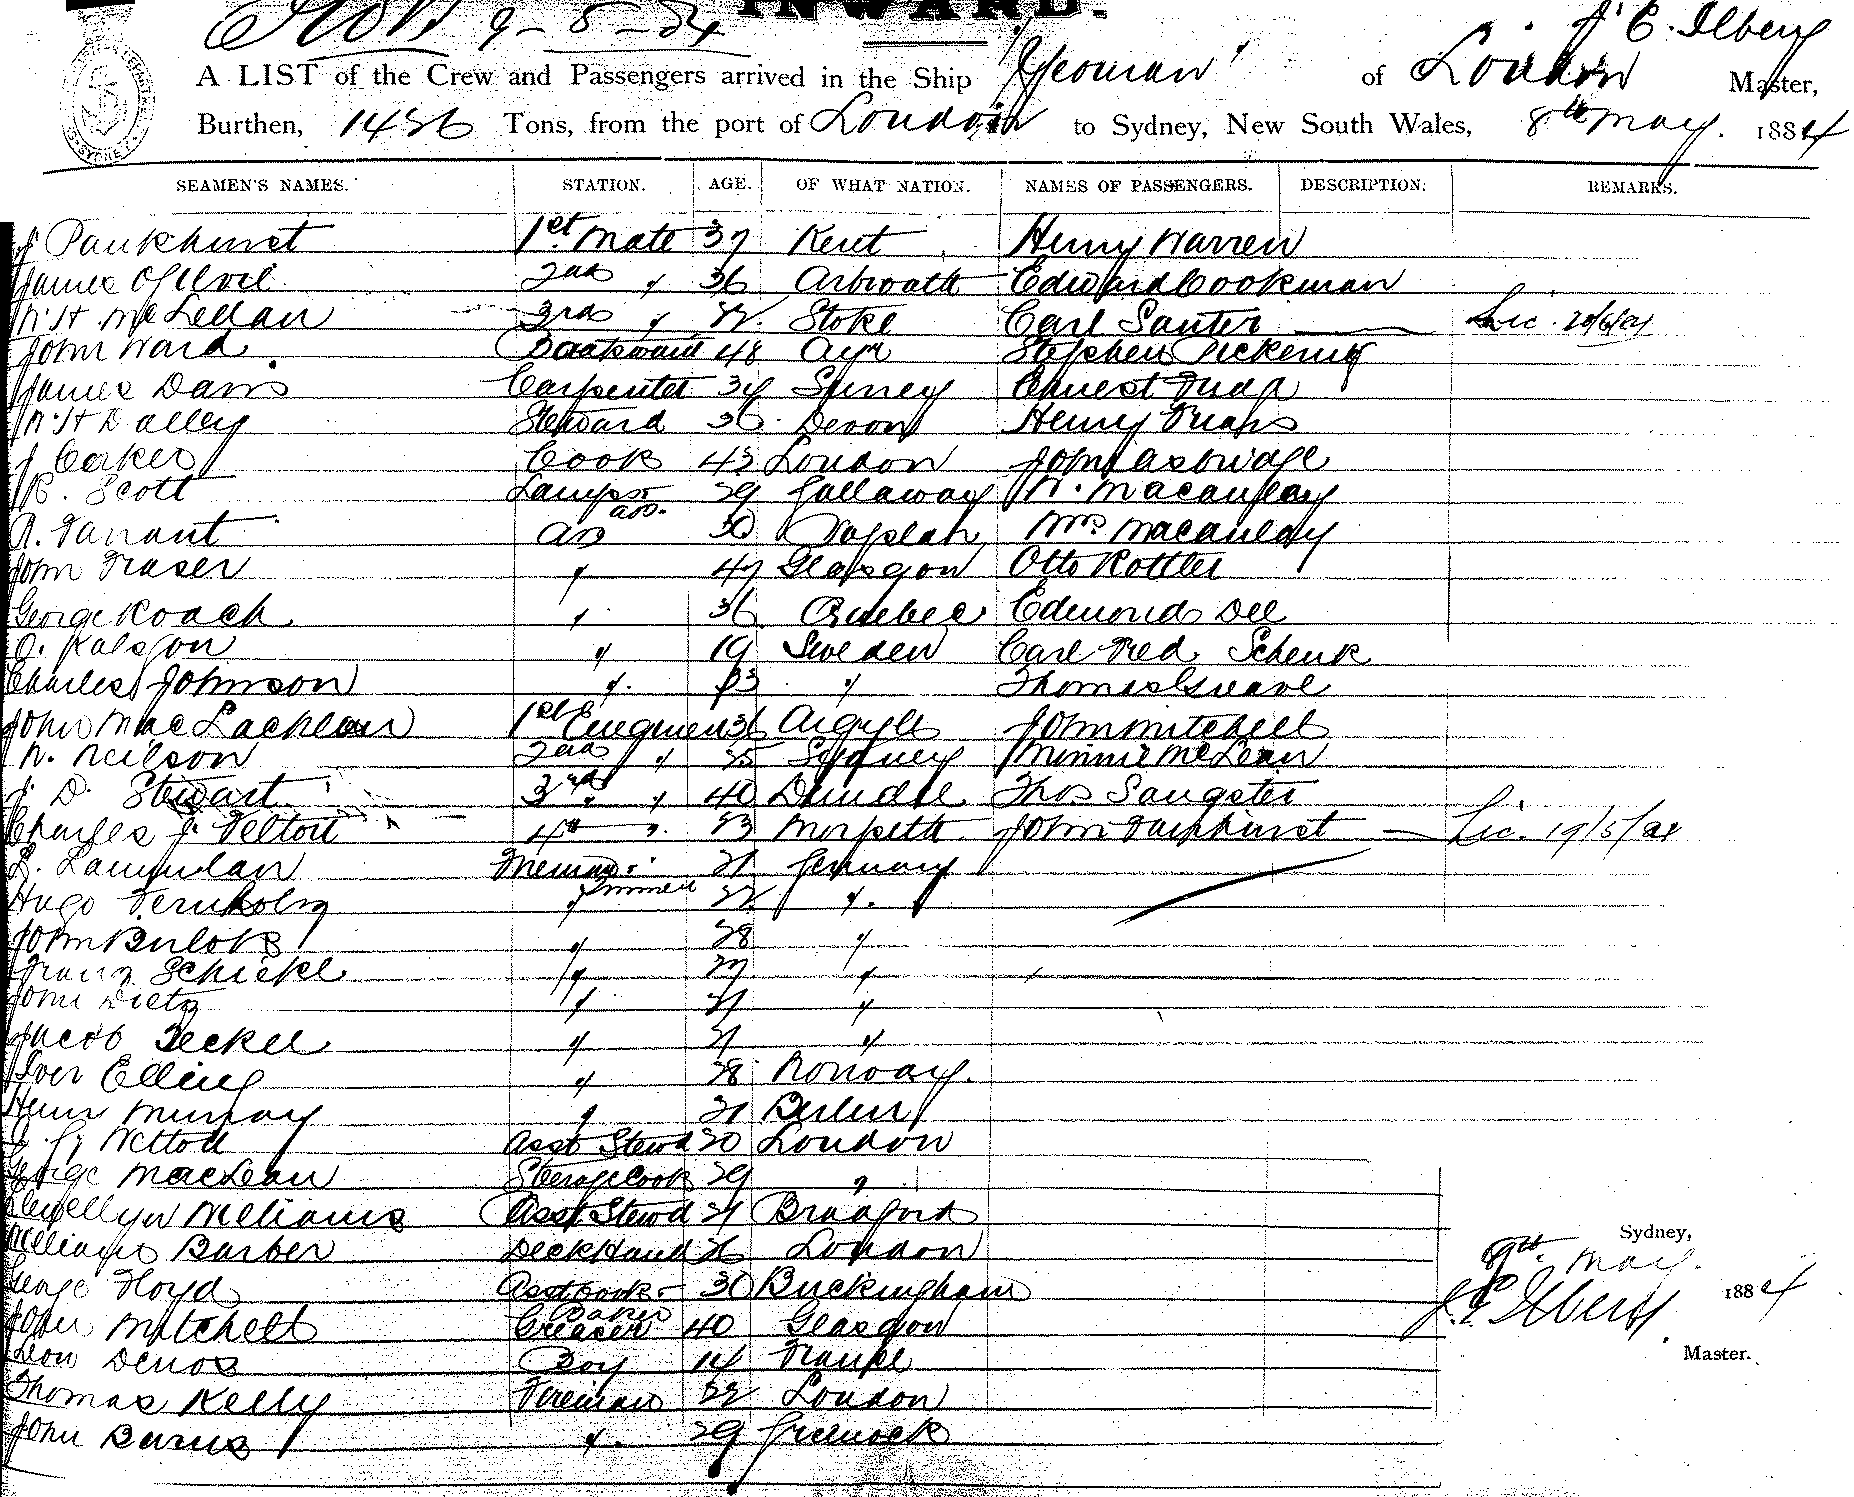 INWARD.
9-5-84
J. E. Ilbery
A LIST of the Crew and Passengers arrived in the Ship "Yeoman" of London Master,
Burthen, 1456 Tons, from the port of London to Sydney, New South Wales, 8th May. 1884
SEAMEN'S NAMES. STATION. AGE. OF WHAT NATION. NAMES OF PASSENGERS. DESCRIPTION. REMARKS.
J Pankhurst 1st Mate 37 Kent Henry Warren
James Ogilvie 2nd " 36 Arbroath Edward Cookman
W H McLellan 3rd " 22 Stoke Carl Sauter Lic. 20/6/84
John Ward 48 Ayr Stephen Pickering
James Davis Carpenter 34 Surrey Ernest
W H Dalley Steward 36 Devon Henry
J Cooker Cook 43 London John Lasbridge
R. Scott Lamps 29 Gallaway W. Macaulay
A. Tarrant AB 30 Mrs Macaulay
John Fraser " 47 Glasgow Otto Rottler
George Roach " 36 Quebec Edmond Dee
" 19 Sweden Carl Fred Schenk
Charles Johnson " 23 " Thomas Greave
John MacLachlan 1st Engineer 36 Argyle John Mitchell
W. Neilson 2nd " 25 Sydney Minnie McLean
J. D. Stewart 3rd " 40 Dundee Thos Sangster
Charles J. Felton 4th " 23 Morpeth John Pankhurst Lic. 19/5/84
L. Lammlan Firemen & Trimmers 21 Germany
Hugo Fernholm " 22 "
John " 28 "
Franz Schickl " 27 "
John Dietz " 21 "
Jacob Zeckel " 21 "
Iver Elling " 28 Norway.
Murray " 31 Berlin
Asst Stewd 20 London
George MacLean Sterage Cook 29 "
Llewellyn Williams Asst Stewd 21 Bradford
William Barber Deck Hand 26 London
George Floyd Asst Cook & Baker 30 Buckingham
John Mitchell Greaser 40 Glasgow
Leon Denos Boy 14 France
Thomas Kelly Fireman 22 London
John Burns " 29 Greenock
Sydney,
9th May. 1884
J. E. Ilbery
Master.